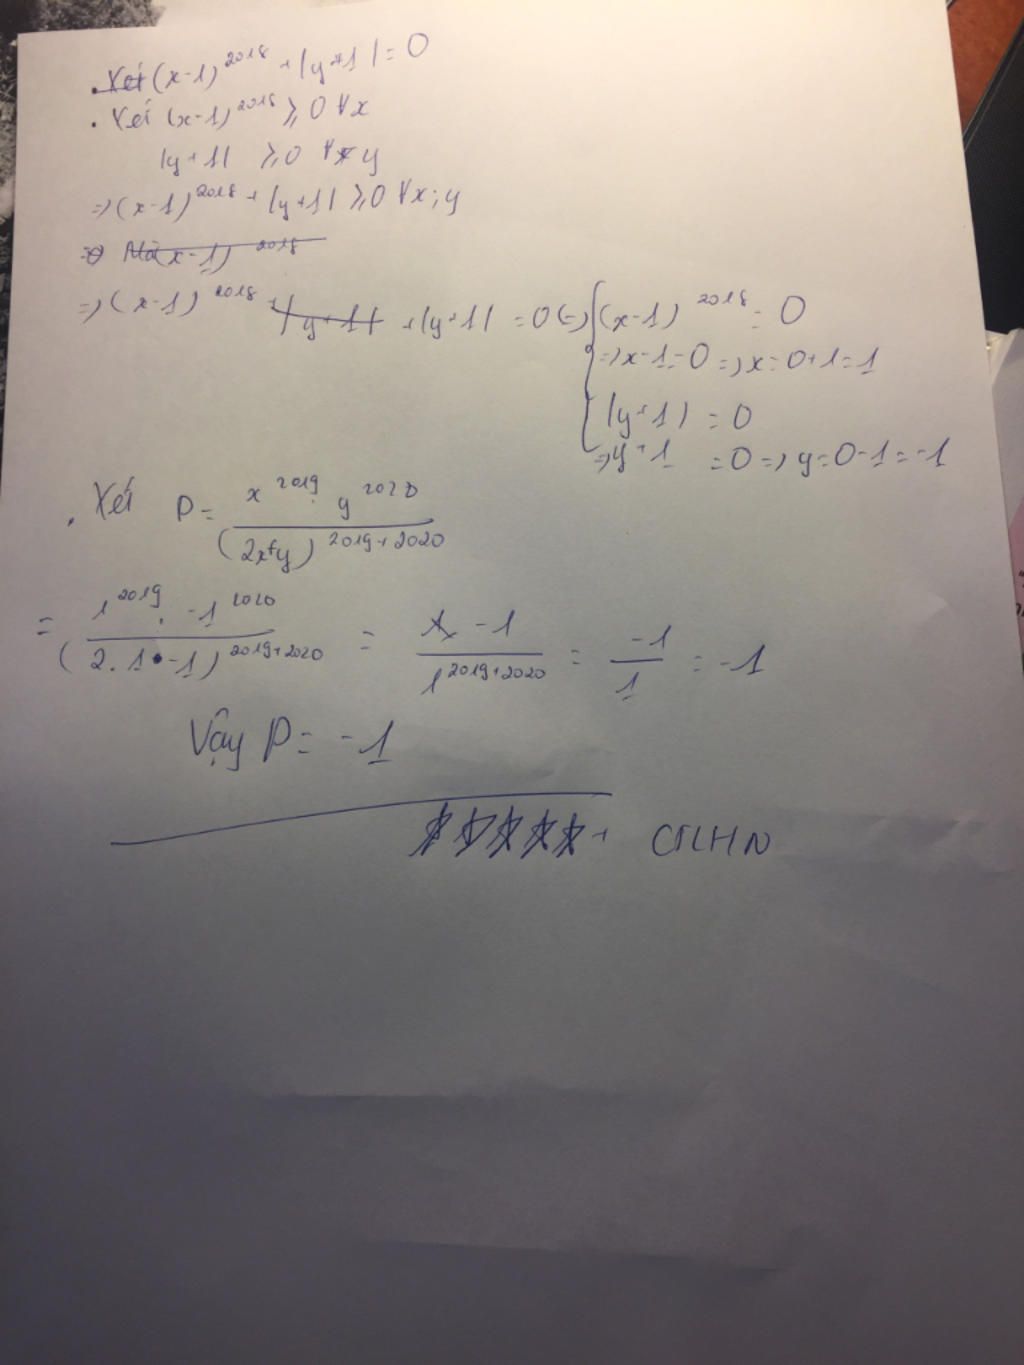 . Xét (x-1)^2018 + |y+1| = 0
. Xét (x-1)^2018 ≥ 0 ∀x
|y+1| ≥ 0 ∀ y
=> (x-1)^2018 + |y+1| ≥ 0 ∀x; y
=> Mà (x-1)^2018
=> (x-1)^2018 + |y+1| + |y+1| = 0 <=> { (x-1)^2018 = 0
=> x-1 = 0 => x = 0+1 = 1
|y+1| = 0
=> y+1 = 0 => y = 0-1 = -1
. Xét P = x^2019 . y^2020 / (2x+y)^2019+2020
= 1^2019 . -1^2020 / (2.1-1)^2019+2020 = 1. -1 / 1^2019+2020 = -1 / 1 = -1
Vậy P = -1
CTLHN